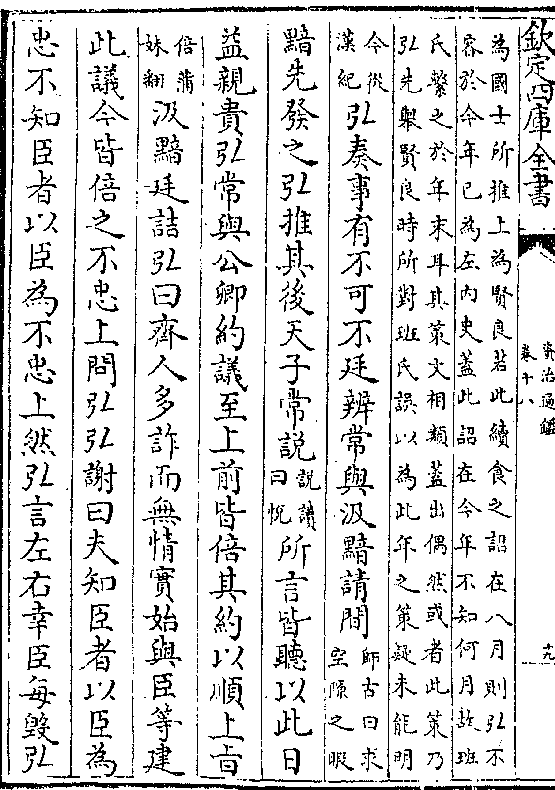 欽定四庫全書
資治通鑑
卷十八
為國士所推上為賢良若此續食之詔在八月則弘不
容於今年已為左內史蓋此詔在今年不知何月故班
氏繫之於年末耳其策文相類蓋出偶然或者此策乃
弘先舉賢良時所對班氏誤以為此年之策疑未能明
今從漢紀弘奏事有不可不廷辨常與汲黯請間師古曰求空隙之暇
黯先發之弘推其後天子常說說讀曰悅所言皆聽以此日
益親貴弘常與公卿約議至上前皆倍其約以順上旨
倍蒲妹翻汲黯廷詰弘曰齊人多詐而無情實始與臣等建
此議今皆倍之不忠上問弘弘謝曰夫知臣者以臣為
忠不知臣者以臣為不忠上然弘言左右幸臣每毀弘